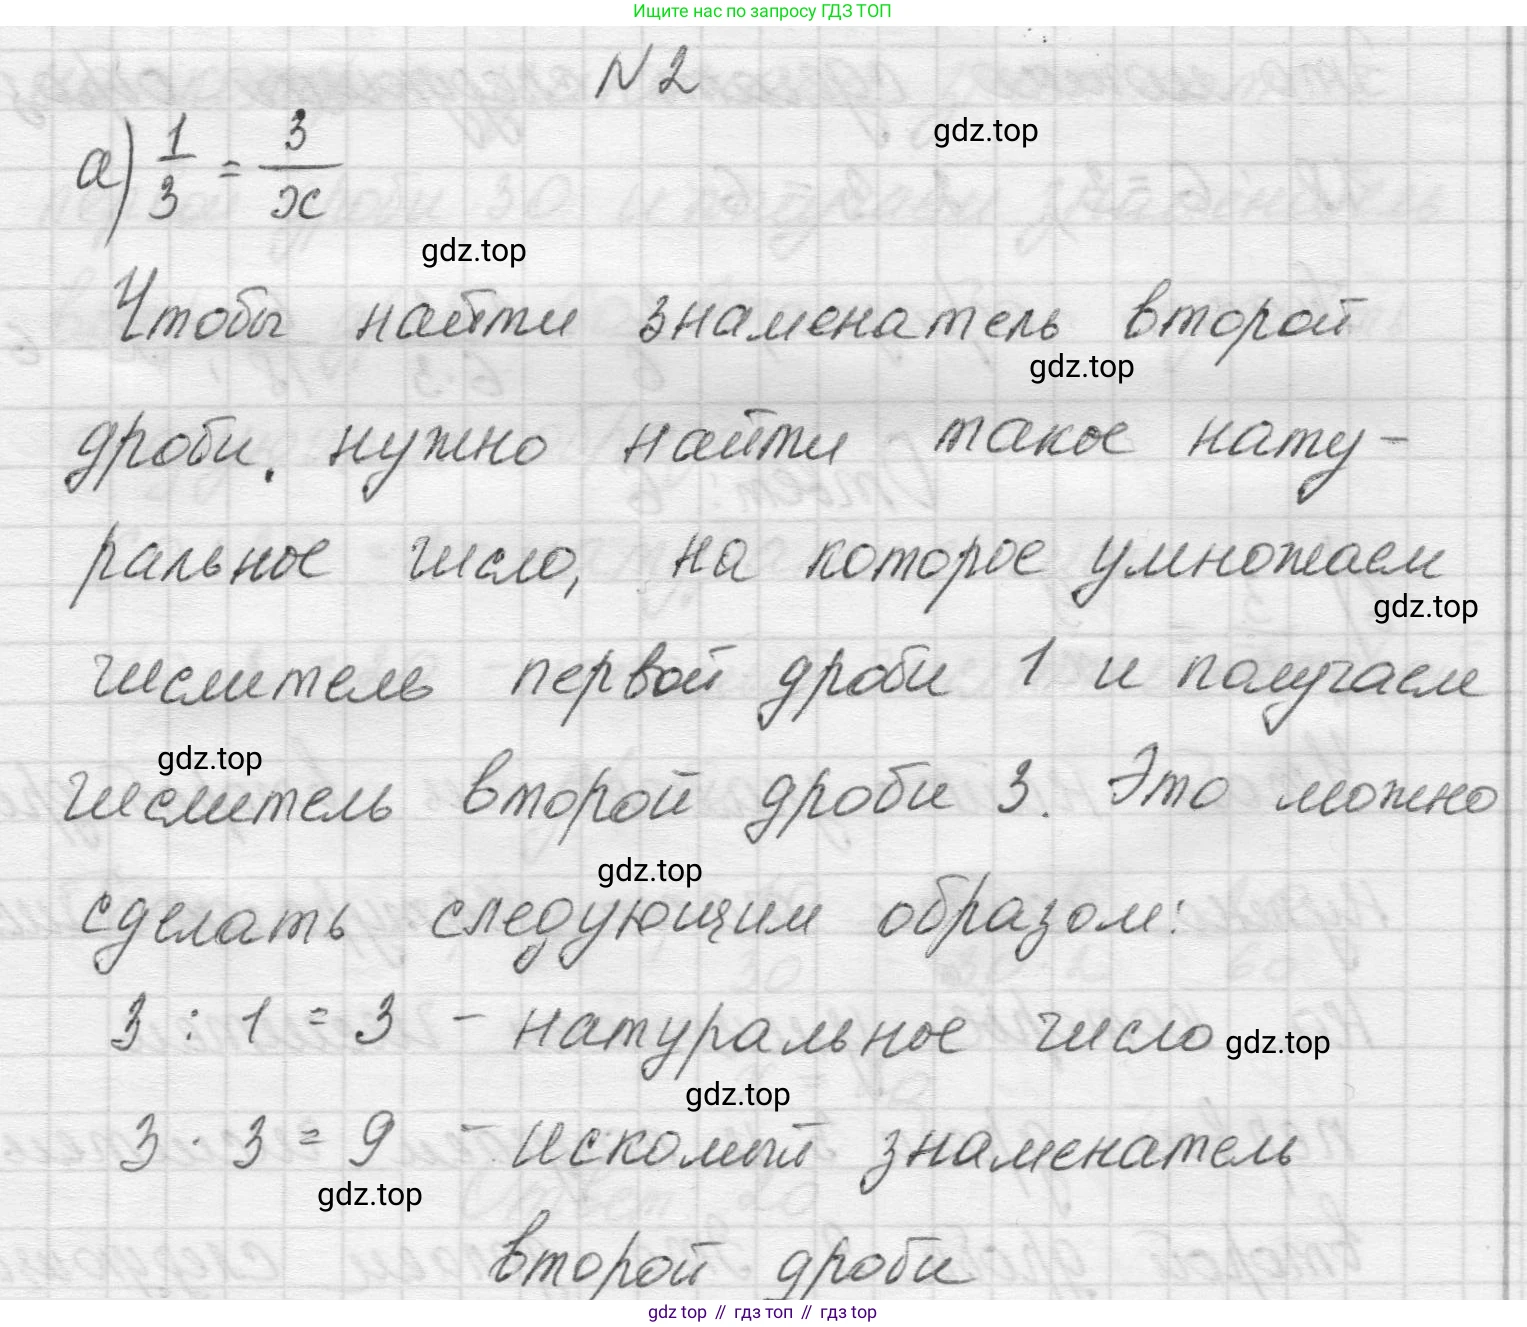 Ищите нас по запросу ГДЗ ТОП
N 2
gdz.top
а) 1/3 = 3/x
gdz.top
Чтобы найти знаменатель второй
gdz.top
дроби, нужно найти такое нату-
ральное число, на которое умножаем
gdz.top
числитель первой дроби 1 и получаем
gdz.top
числитель второй дроби 3. Это можно
gdz.top
сделать следующим образом:
3 : 1 = 3 - натуральное число
gdz.top
gdz.top
3 · 3 = 9 - искомый знаменатель
gdz.top
второй дроби
gdz top // гдз топ // гдз top